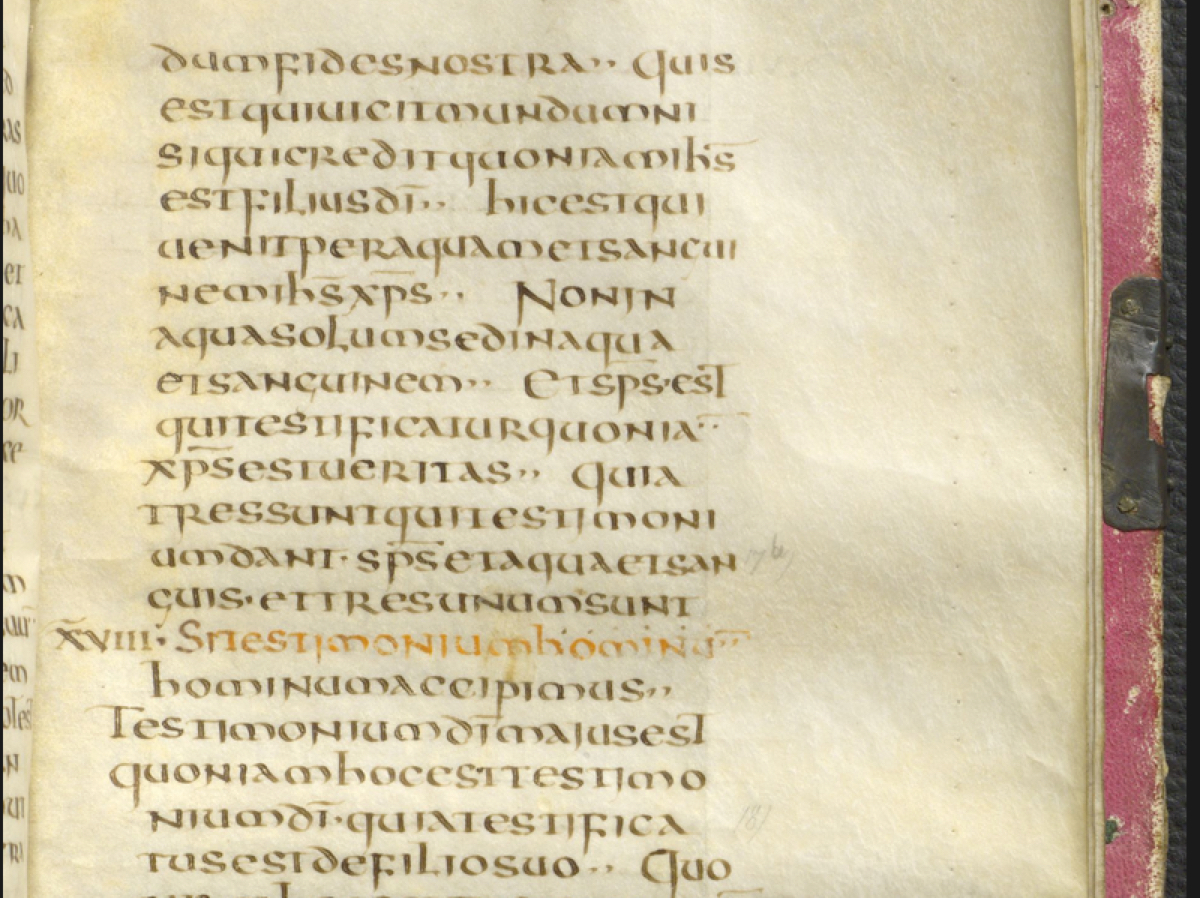 dumfidesnostra,, Quis
estquiuicitmundumni
siquicreditquoniamih̅s̅
estfiliusdi̅,, hicestqui
uenitperaquametsangui
nemih̅s̅xp̅s,, Nonin
aquasolumsedinaqua
etsanguinem,, Etsp̅s·est
quitestificaturquonia̅
xp̅s̅estueritas,, Quia
tressuntquitestimoni
umdant·sp̅s̅etaquaetsan
guis·ettresunumsunt
x̅viii·Sitestimoniumhominu̅
hominumaccipimus,,
Testimoniumdi̅maiusest
quoniamhocesttestimo
niumdi̅·quiatestifica
tusestdefiliosuo,, Quo